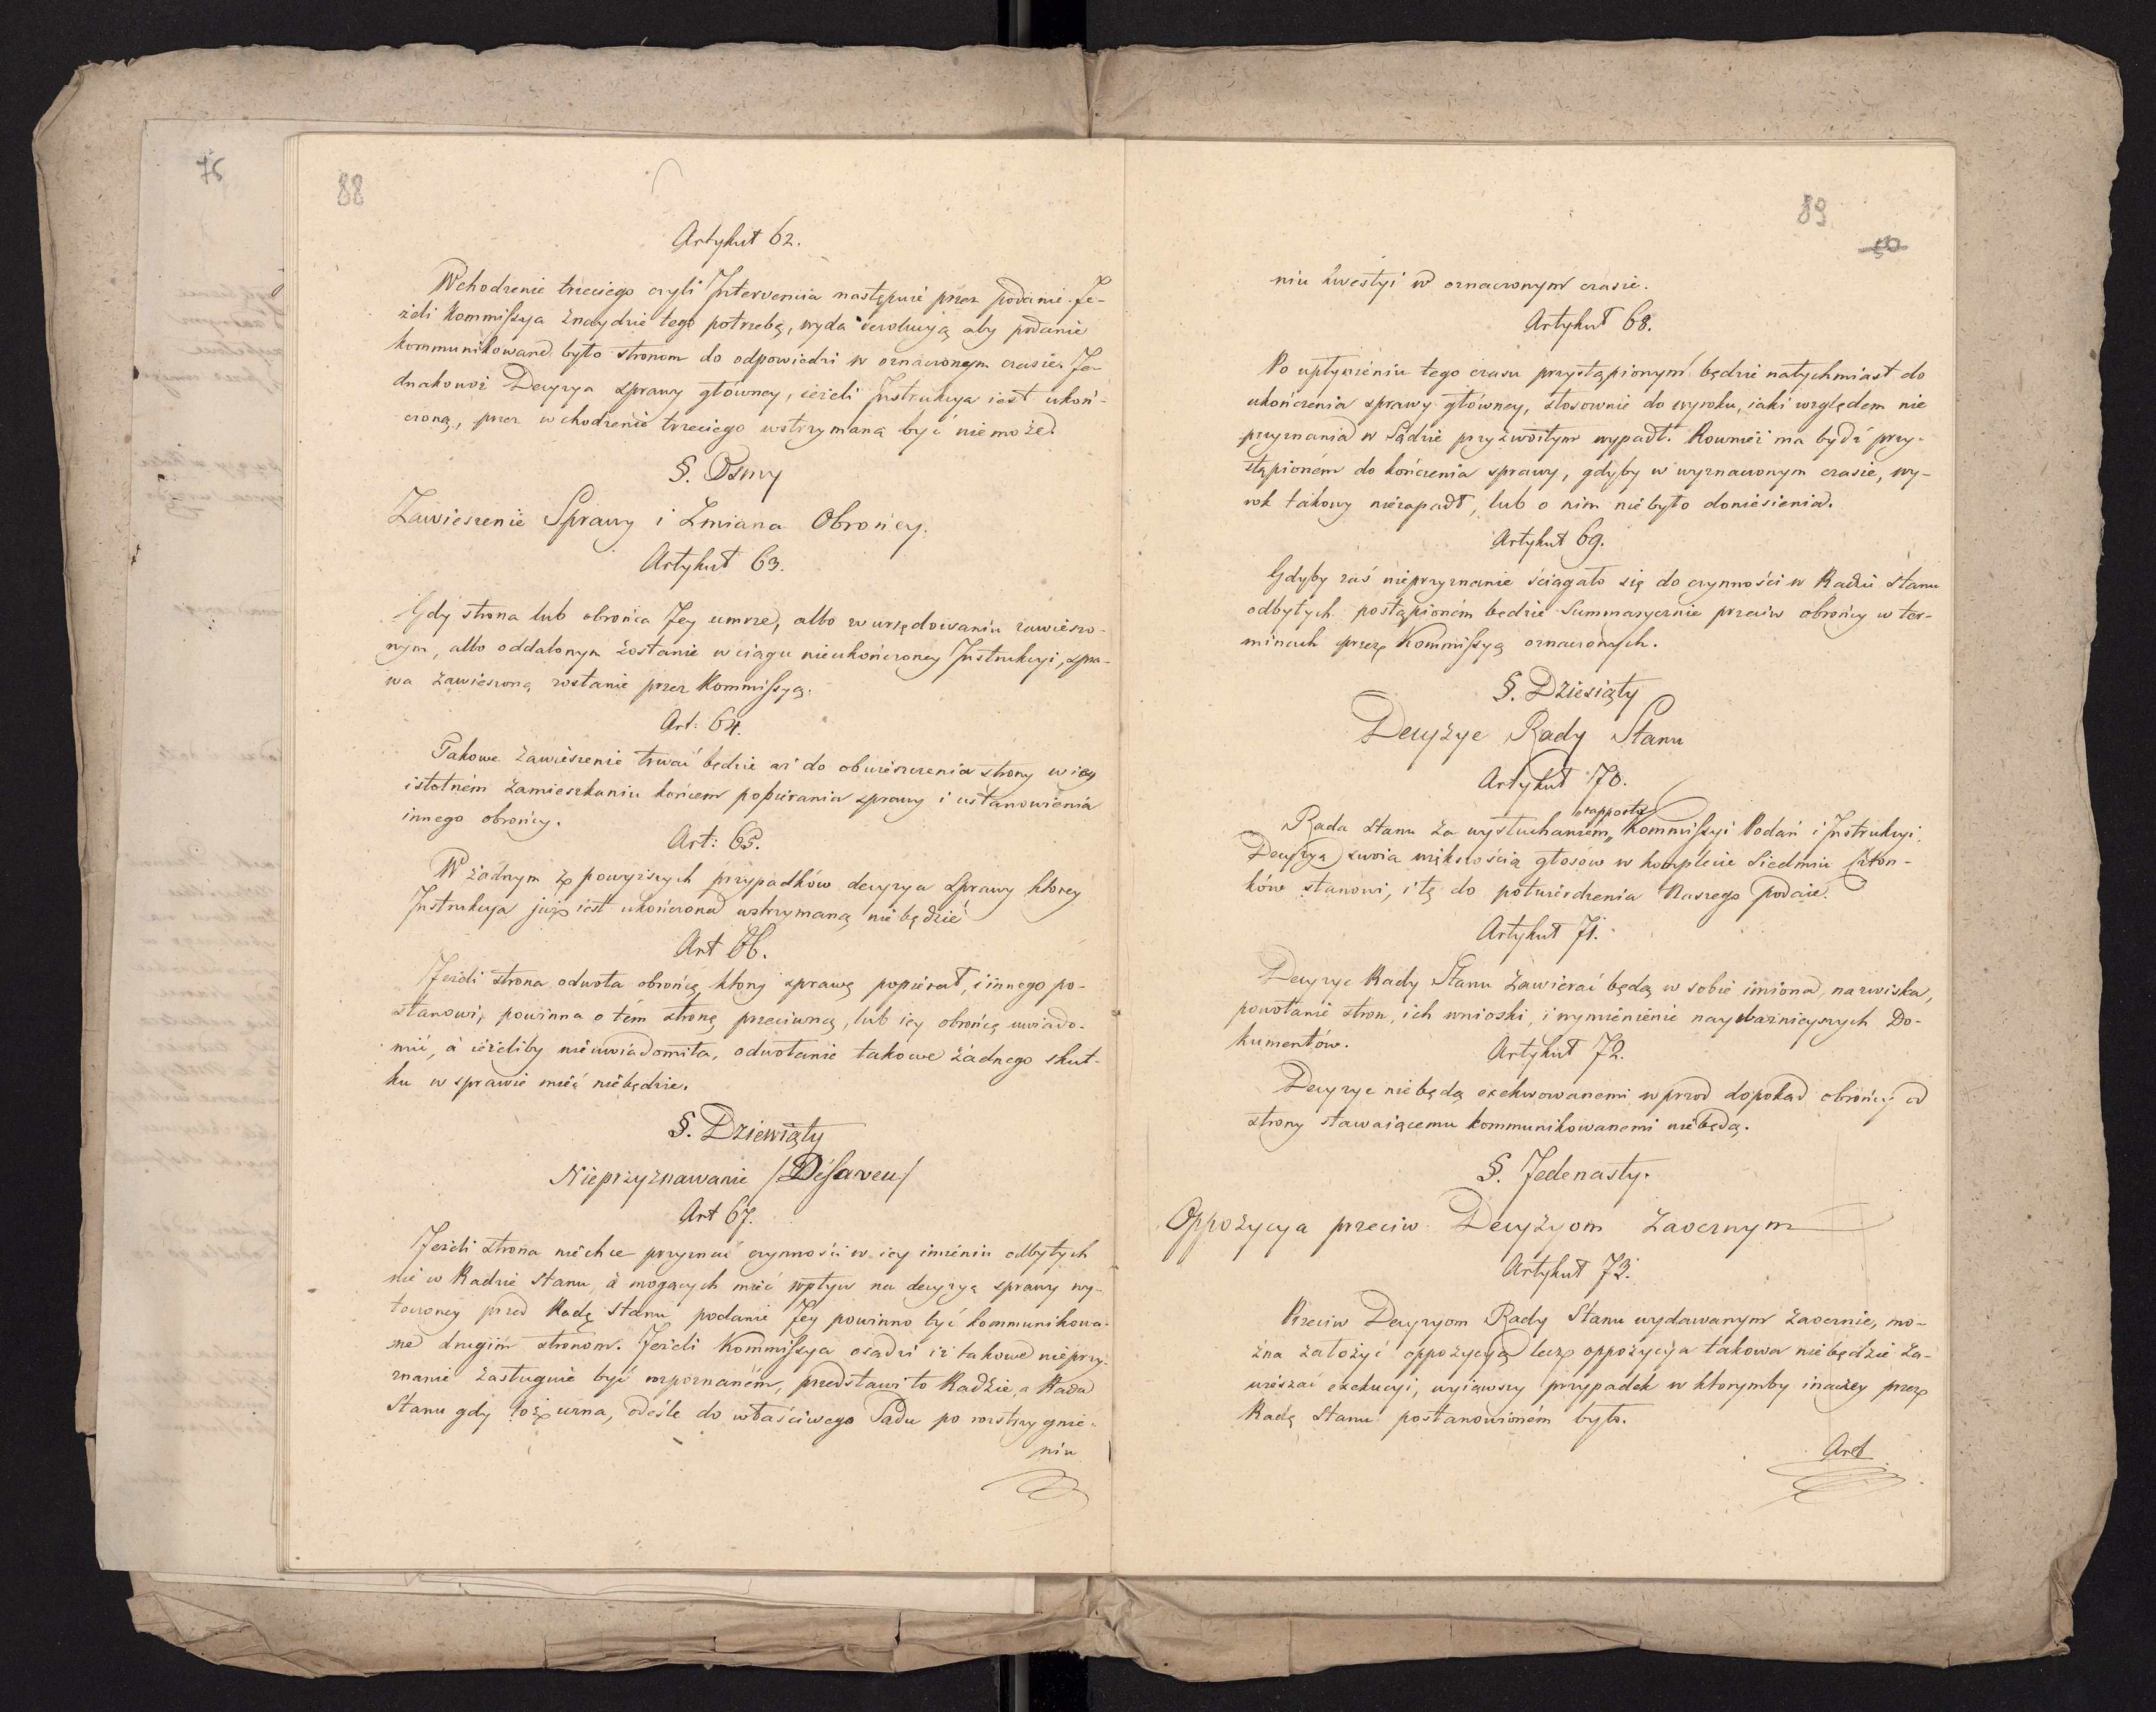 76
88
Artykuł 62.
Wchodzenie trzeciego czyli Interwencia następuie przez podanie. Je-
żeli Kommissya znaydzie tego potrzebę, wyda rezolucyą aby podanie
kommunikowane było stronom do odpowiedzi w oznaczonym czasie. Je-
dnakowoż Decyzya sprawy główney, ieżeli Instrukcya iest ukoń-
czoną, przez wchodzenie trzeciego wstrzymaną być niemoże.
§. Osmy
Zawieszenie Sprawy i Zmiana Obrońcy.
Artykuł 63.
Gdy strona lub obrońca Jey umrze, albo w urzędowaniu zawieszo-
nym, albo oddalonym zostanie w ciągu nieukończoney Instrukcyi, spra-
wa zawieszoną zostanie przez Kommissyą.
Art: 64.
Takowe zawieszenie trwać będzie aż do obwieszczenia strony w iey
istotném zamieszkaniu końcem popierania sprawy i ustanowienia
innego obrońcy.
Art: 65.
W żadnym z powyższych przypadków decyzya sprawy którey
Instrukcya już iest ukończona wstrzymaną nie będzie
Art 66.
Jeżeli strona odwoła obrońcę, który sprawę popierał, i innego po-
stanowi, powinna o tém stronę przeciwną, lub iey obrońcę uwiado-
mić, a ieżeliby nieuwiadomiła, odwołanie takowe żadnego skut-
ku w sprawie mieć niebędzie.
§. Dziewiąty
Nieprzyznawanie /Désaveu/
Art 67.
Jeżeli strona niechce przyznać czynności w iey imieniu odbytych
nie w Radzie Stanu, a mogących mieć wpływ na decyzyą sprawy wy-
toczoney przed Radę Stanu, podanie Jey powinno być kommunikowa-
ne drugim stronom. Jeżeli Kommissya osądzi iż takowe nieprzy-
znanie zasługuie być rozpoznaném, przedstawi to Radzie, a Rada
Stanu gdy toż uzna, odeśle do właściwego Sądu po rozstrzygnie-
niu
89
50
niu kwestyi w oznaczonym czasie.
Artykuł 68.
Po upłynieniu tego czasu przystąpionym będzie natychmiast do
ukończenia sprawy główney, stosownie do wyroku, iaki względem nie
przyznania w Sądzie przyzwoitym wypadł. Rownież ma bydź przy-
stąpioném do kończenia sprawy, gdyby w wyznaczonym czasie, wy-
rok takowy niezapadł, lub o nim niebyło doniesienia.
Artykuł 69.
Gdyby zaś nieprzyznanie ściągało się do czynności w Radzie Stanu
odbytych postąpioném będzie Summarycznie przeciw obrońcy w ter-
minach przez Kommissyą oznaczonych.
§. Dziesiąty
Decyzye Rady Stanu
Artykuł 70.
rapportu
Rada Stanu za wysłuchaniem „ Kommissyi Podań i Instrukcyi
Decyzyą swoią większością głosów w komplecie Siedmiu Człon-
ków stanowi, i tę do potwierdzenia Naszego podaie.
Artykuł 71.
Decyzye Rady Stanu zawierać będą w sobie imiona, nazwiska,
powołanie stron, ich wnioski, i wymienienie nayważnieyszych Do-
kumentów.
Artykuł 72.
Decyzye niebędą exekwowanemi wprzod dopokad obrońcy od
strony stawaiącemu kommunikowanemi niebędą.
§. Jedenasty.
Oppozycya przeciw Decyzyom zaocznym
Artykuł 73.
Przeciw Decyzyom Rady Stanu wydawanym zaocznie, mo-
żna założyć oppozycyą lecz oppozycya takowa niebędzie za-
wieszać exekucyi, wyiąwszy przypadek w którymby inaczey przez
Radę Stanu postanowioném było.
Art